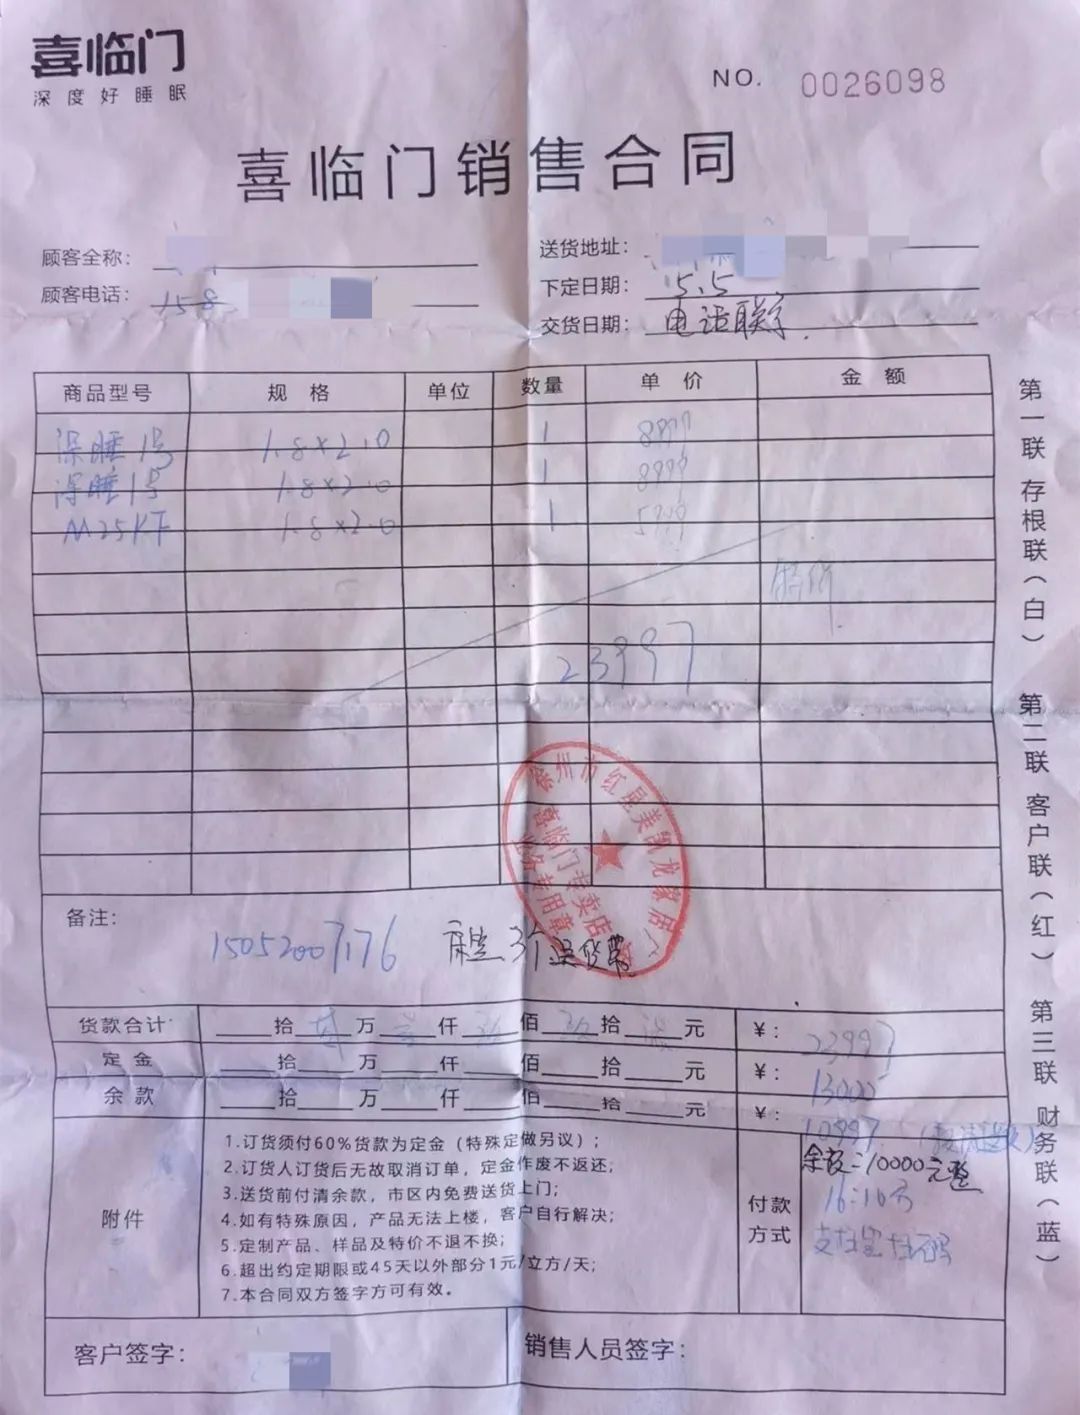 喜临门
深度好睡眠
NO. 0026098
喜临门销售合同
顾客全称:
送货地址:
顾客电话: 158
下定日期: 5.5
交货日期: 电话联系
商品型号 规格 单位 数量 单价 金额
深睡1号 1.8×2.0 1 8999
深睡1号 1.8×2.0 1 8999
M25KT 1.8×2.0 1 5999
特价
23997
徐州市红星美凯龙家居广
喜临门专卖店
业务专用章
备注:
15052007176 床垫3个送货费
货款合计 拾 万 仟 佰 拾 元 ¥: 23997
定金 拾 万 仟 佰 拾 元 ¥: 13000
余款 拾 万 仟 佰 拾 元 ¥: 10997
余款=10000元整
附件
1.订货须付60%货款为定金（特殊定做另议）;
2.订货人订货后无故取消订单，定金作废不返还;
3.送货前付清余款，市区内免费送货上门;
4.如有特殊原因，产品无法上楼，客户自行解决;
5.定制产品、样品及特价不退不换;
6.超出约定期限或45天以外部分1元/立方/天;
7.本合同双方签字方可有效。
付款方式
支付宝扫码
客户签字:
销售人员签字:
第一联 存根联（白） 第二联 客户联（红） 第三联 财务联（蓝）